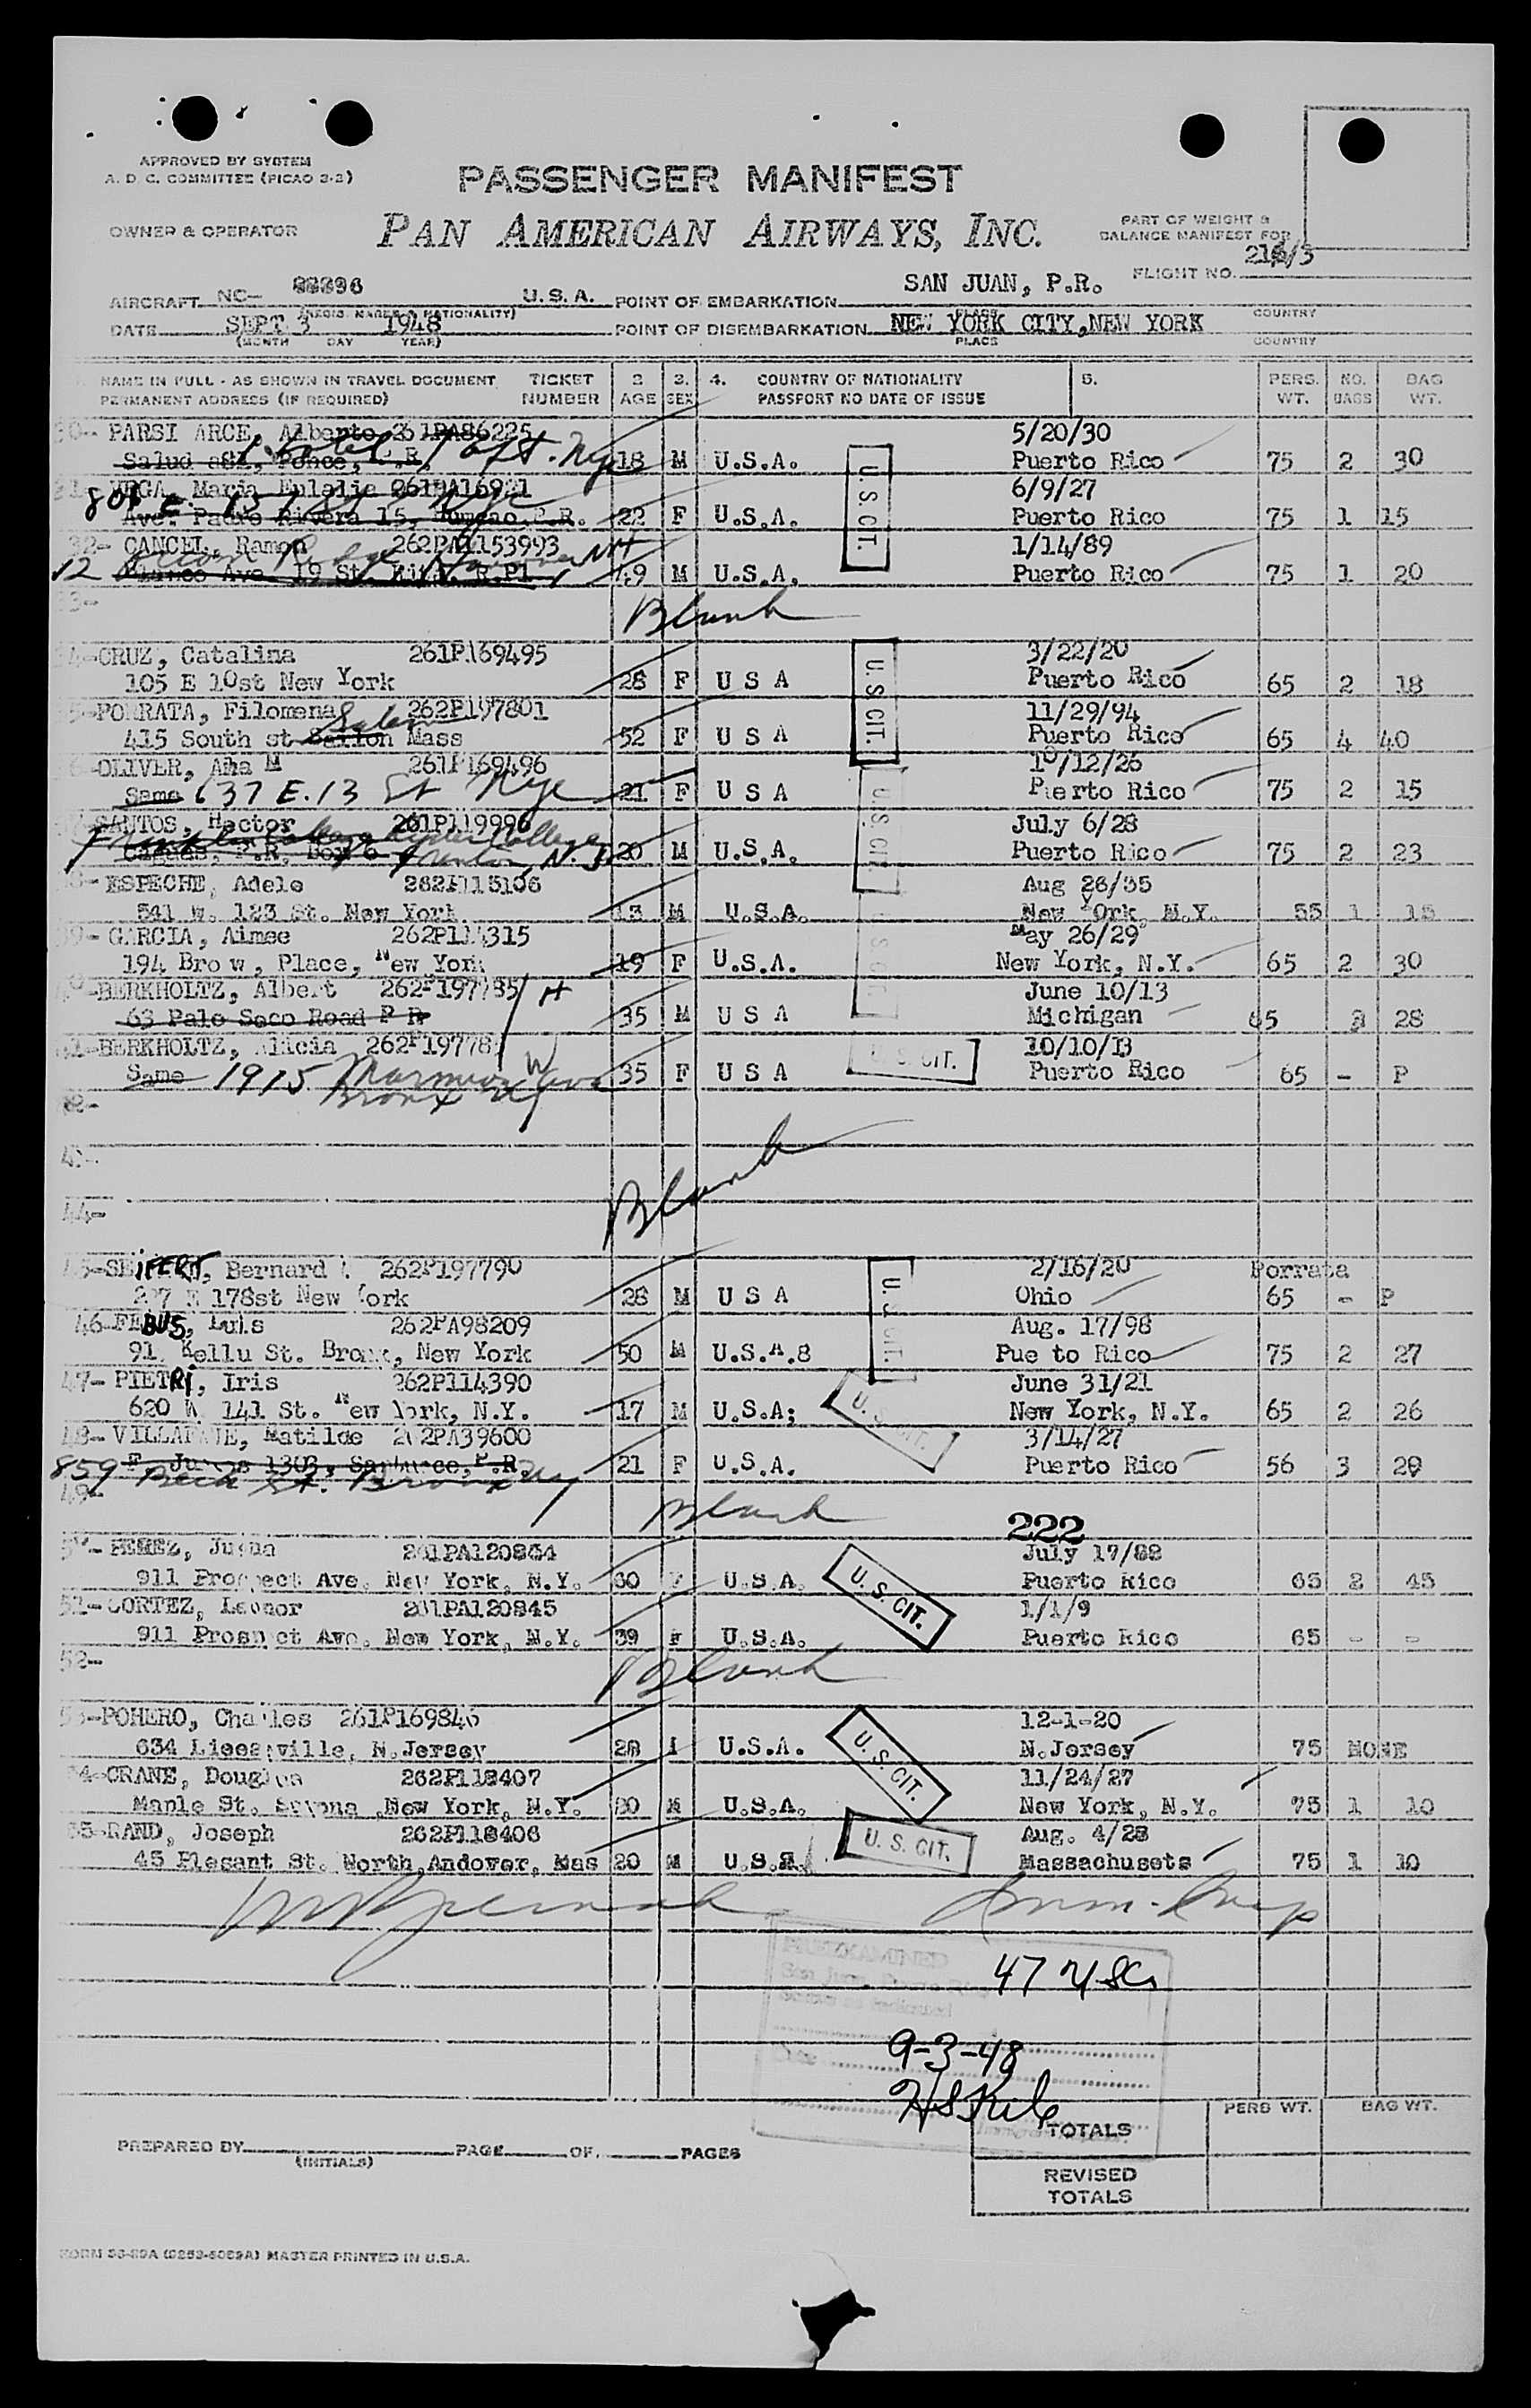 APPROVED BY SYSTEM
A. D. C. COMMITTEE (PICAO 2-2)
PASSENGER MANIFEST
OWNER & OPERATOR
PAN AMERICAN AIRWAYS, INC.
PART OF WEIGHT &
BALANCE MANIFEST FOR
FLIGHT NO.
AIRCRAFT NC- U.S.A. POINT OF EMBARKATION SAN JUAN, P.R.
(REGIS. MARKS & NATIONALITY) PLACE COUNTRY
DATE SEPT 3 1948 POINT OF DISEMBARKATION NEW YORK CITY,NEW YORK
(MONTH DAY YEAR) PLACE COUNTRY
NAME IN FULL - AS SHOWN IN TRAVEL DOCUMENT TICKET 2 3. 4. COUNTRY OF NATIONALITY 5. PERS. NO. BAG
PERMANENT ADDRESS (IF REQUIRED) NUMBER AGE SEX PASSPORT NO DATE OF ISSUE WT. BAGS WT.
30- PARSI ARCE, Alberto 261PA86225 5/20/30
Hotel Taft. Nyc 18 M U.S.A. Puerto Rico 75 2 30
31- VEGA, Maria Eulalia 261PA16921 6/9/27
Ave. Padro Rivera 15, Humcao,P.R. 22 F U.S.A. Puerto Rico 75 1 15
U.S.CIT.
32- CANCEL, Ramon 1/14/89
49 M U.S.A. Puerto Rico 75 1 20
33-
Blank
34-CRUZ, Catalina 261P169495 3/22/20
105 E 10st New York 28 F U S A Puerto Rico 65 2 18
U.S.CIT.
35-PORRATA, Filomena 262P197801 11/29/94
Salem
415 South st Mass 52 F U S A Puerto Rico 65 4 40
36-OLIVER, Aha M 261P169496 10/12/26
Same 637 E. 13 St Nyc 21 F U S A Puerto Rico 75 2 15
U.S.CIT.
SANTOS, Hector 261P119996 July 6/28
N.J. 20 M U.S.A. Puerto Rico 75 2 23
38- ESPECHE, Adele 262P115106 Aug 26/35
541 W. 123 St. New York 13 M U.S.A. New York, N.Y. 55 1 15
39- GARCIA, Aimee 262P114315 May 26/29
194 Brow, Place, New York 19 F U.S.A. New York, N.Y. 65 2 30
40-BERKHOLTZ, Albert H June 10/13
63 Palo Seco Road P R 35 M U S A Michigan 28
41-BERKHOLTZ, Alicia W 10/10/13
Same 1915 Marmion Ave 35 F U S A Puerto Rico 65 - P
Bronx Ny
U.S.CIT.
42-
43-
Blank
44-
45-SEIFERT, Bernard 262P197790 2/16/20 Porrata
178st New York 28 M U S A Ohio 65 - P
46-FEBUS, Luis 262PA98209 Aug. 17/98
91 Kellu St. Bronx, New York 50 M U.S.A.8 Pue to Rico 75 2 27
47- PIETRi, Iris 262P114390 June 31/21
620 W 141 St. New York, N.Y. 17 M U.S.A; New York, N.Y. 65 2 26
48- VILLAFANE, Matilde 262PA39600 3/14/27
859 Beck St. Bronx Ny 21 F U.S.A. Puerto Rico 56 3 29
49-
Blank
222
50- PEREZ, 261PA120854 July 17/88
911 Prospect Ave. New York, N.Y. 60 F U.S.A. Puerto Rico 65 2 45
U.S.CIT.
51-CORTEZ, Leonor 261PA120845 1/1/9
911 Prospect Ave. New York, N.Y. 39 F U.S.A. Puerto Rico 65 - -
52-
Blank
53-POHERO, Charles 261P169846 12-1-20
28 U.S.A. N.Jersey 75 NONE
U.S.CIT.
54-CRANE, Douglas 262P118407 11/24/27
Maple St. Savona ,New York, N.Y. 20 M U.S.A. New York, N.Y. 75 1 10
55-RAND, Joseph 262P118406 Aug. 4/28
45 Plesant St. North,Andover, Mas 20 M U.S.A. Massachusets 75 1 10
U.S.CIT.
Imm. Insp
PREEXAMINED
47 USCs
9-3-48
PERS WT. BAG WT.
TOTALS
PREPARED BY PAGE OF PAGES
(INITIALS)
REVISED
TOTALS
MASTER PRINTED IN U.S.A.